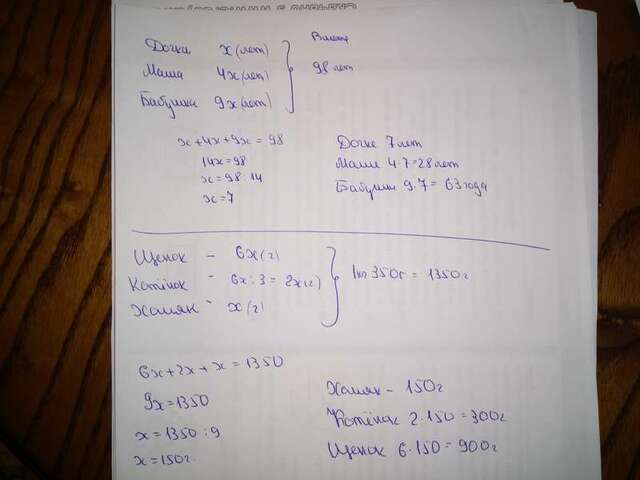 Дочка x (лет)
Мама 4x (лет)
Бабушка 9x (лет)
Вместе
98 лет
x + 4x + 9x = 98
14x = 98
x = 98 : 14
x = 7
Дочке 7 лет
Маме 4 · 7 = 28 лет
Бабушке 9 · 7 = 63 года
Щенок - 6x (г)
Котёнок - 6x : 3 = 2x (г)
Хомяк - x (г)
1кг 350г = 1350г
6x + 2x + x = 1350
9x = 1350
x = 1350 : 9
x = 150г
Хомяк - 150г
Котёнок 2 · 150 = 300г
Щенок 6 · 150 = 900г